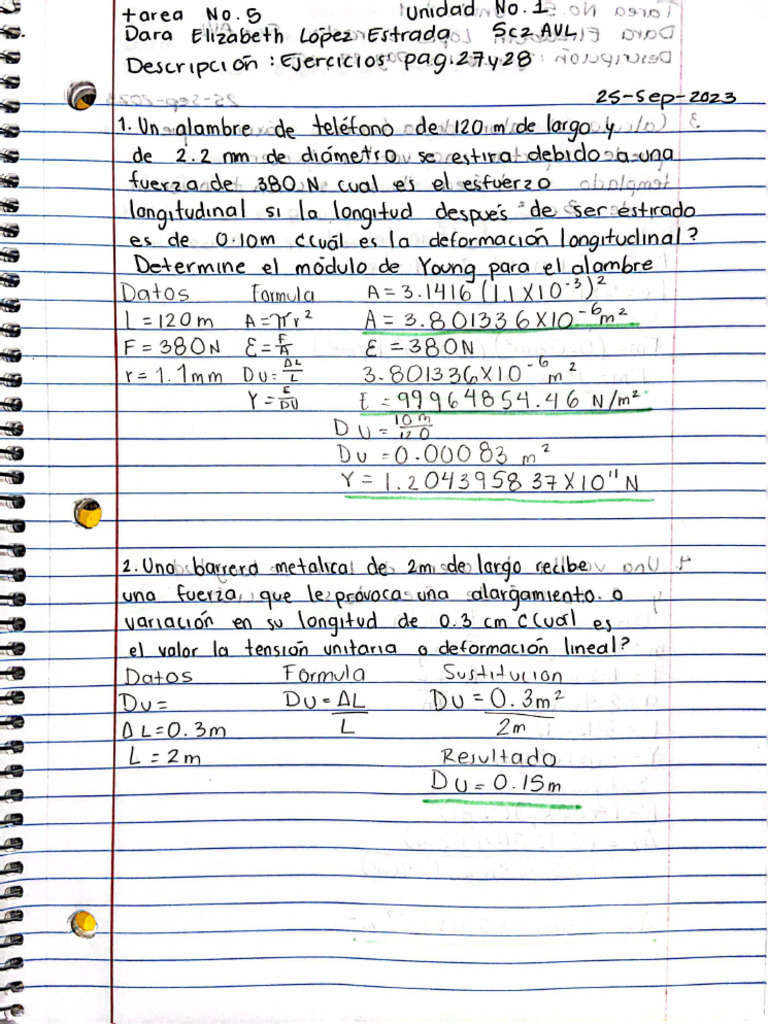 tarea No. 5 Unidad No. 1
Dara Elizabeth López Estrada 5c2 AVL
Descripción: Ejercicios pag. 27 y 28
25-Sep-2023
1. Un alambre de teléfono de 120 m de largo y
de 2.2 nm de diámetro se estira debido a una
fuerza de 380 N cual es el esfuerzo
longitudinal si la longitud después de ser estirado
es de 0.10m ¿Cuál es la deformación longitudinal?
Determine el módulo de Young para el alambre
Datos Formula A = 3.1416 (1.1 X10⁻³)²
L = 120 m A = πr² A = 3.801336X10⁻⁶m²
F = 380N Ɛ = F/A Ɛ = 380N
r = 1.1mm DU = ΔL/L 3.801336X10⁻⁶ m²
Y = Ɛ/DU Ɛ = 99964854.46 N/m²
DU = 10 m/120
DU = 0.00083 m²
Y = 1.204395837X10¹¹ N
2. Una barrera metalica de 2m de largo recibe
una fuerza que le provoca una alargamiento o
variación en su longitud de 0.3 cm ¿Cual es
el valor la tensión unitaria o deformación lineal?
Datos Formula Sustitucion
DU = DU = ΔL/L DU = 0.3m²/2m
ΔL = 0.3m
L = 2m Resultado
DU = 0.15m